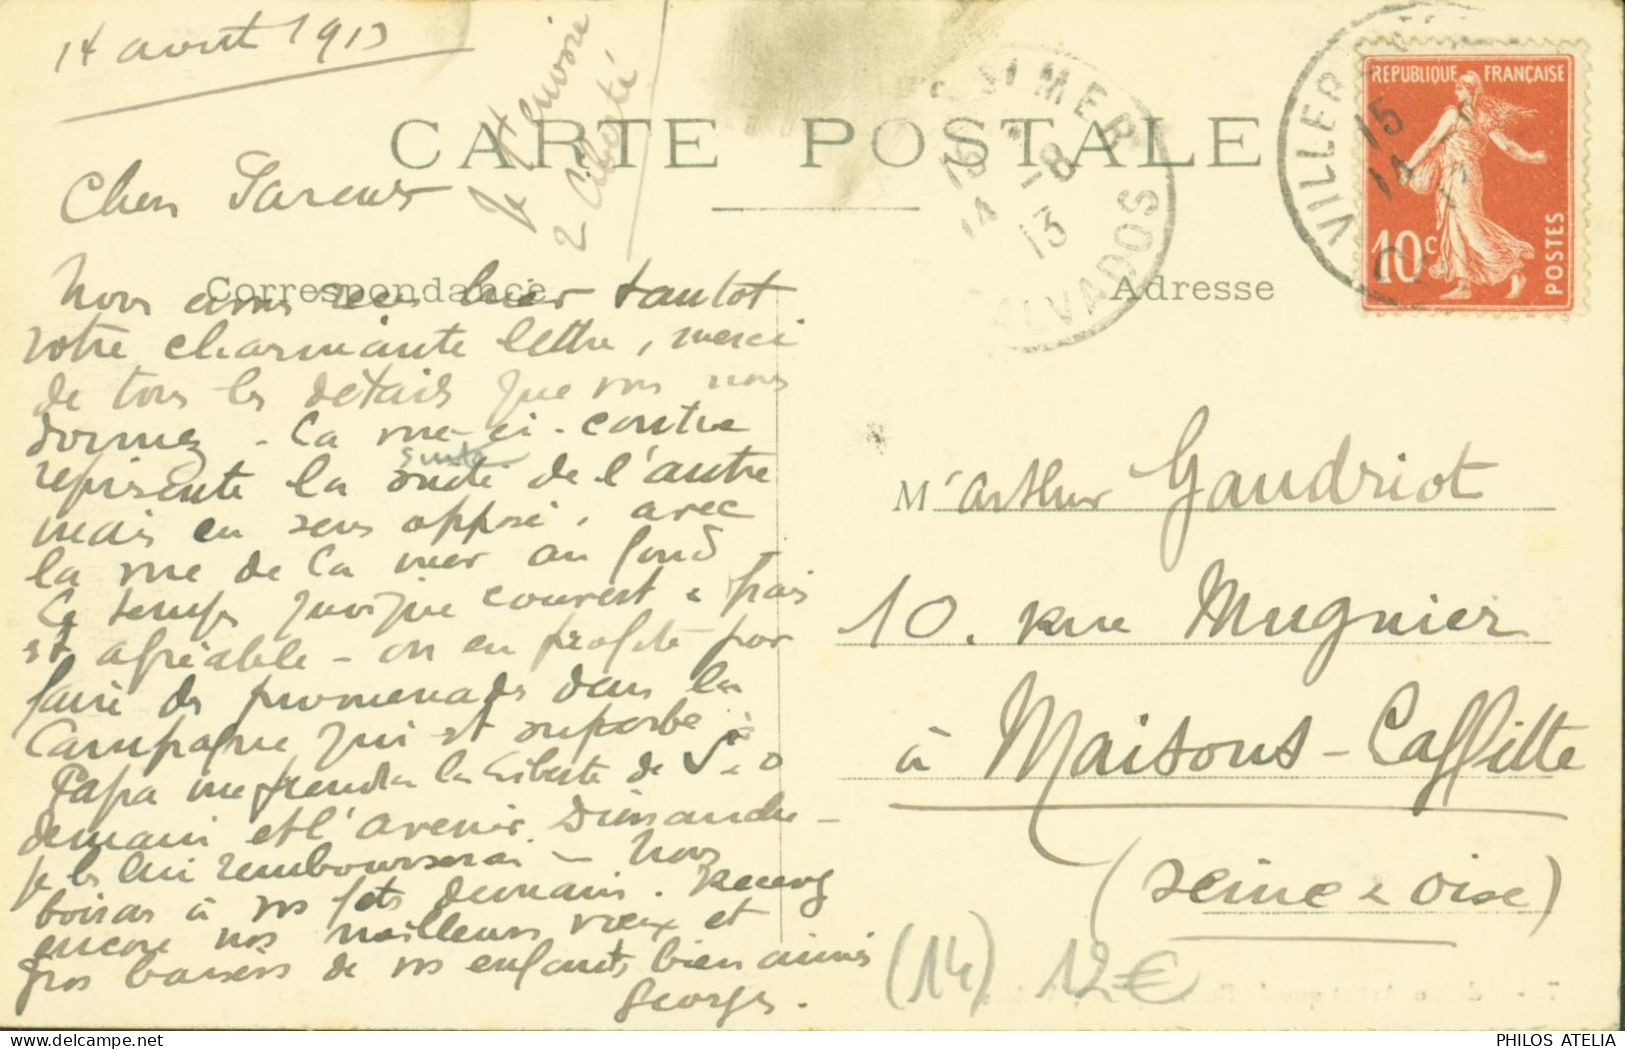 14 avril 1913
Je t'envoie
2 Liberté
CARTE POSTALE
RÉPUBLIQUE FRANÇAISE
10c
POSTES
VILLER
15
14
MER
15
14 -8
13
CALVADOS
Chers Parents
Correspondance
Adresse
Nous avons reçu hier tantôt
votre charmante lettre, merci
de tous les détails que vous nous
donnez - La vue ci-contre
représente la suite de l'autre
suite
mais en sens opposé, avec
la rue de la mer au fond
Le temps quoique couvert & frais
est agréable - on en profite pour
faire des promenades dans la
campagne qui est superbe
Papa me prendra la Liberté de S & O
demain et l'avenir Dimanche -
je les lui rembourserai - Nous
boirons à vos fêtes demain. Recevez
encore nos meilleurs vœux et
gros baisers de vos enfants bien aimés
Georges.
M r Arthur Gaudriot
10. rue Mugnier
à Maisons-Laffitte
(Seine & Oise)
(14) 12€
PHILOS ATELIA